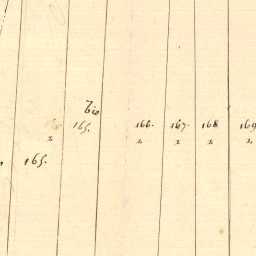 bis
165. 166. 167. 168 169
2 2 2 2 2,
165.